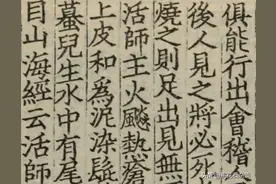 俱能行出會稽
後人見之將必死
燒之則足出見無
活師主火飈熱瘡
上皮和為泥染髭
蟇兒生水中有尾
目山海經云活師